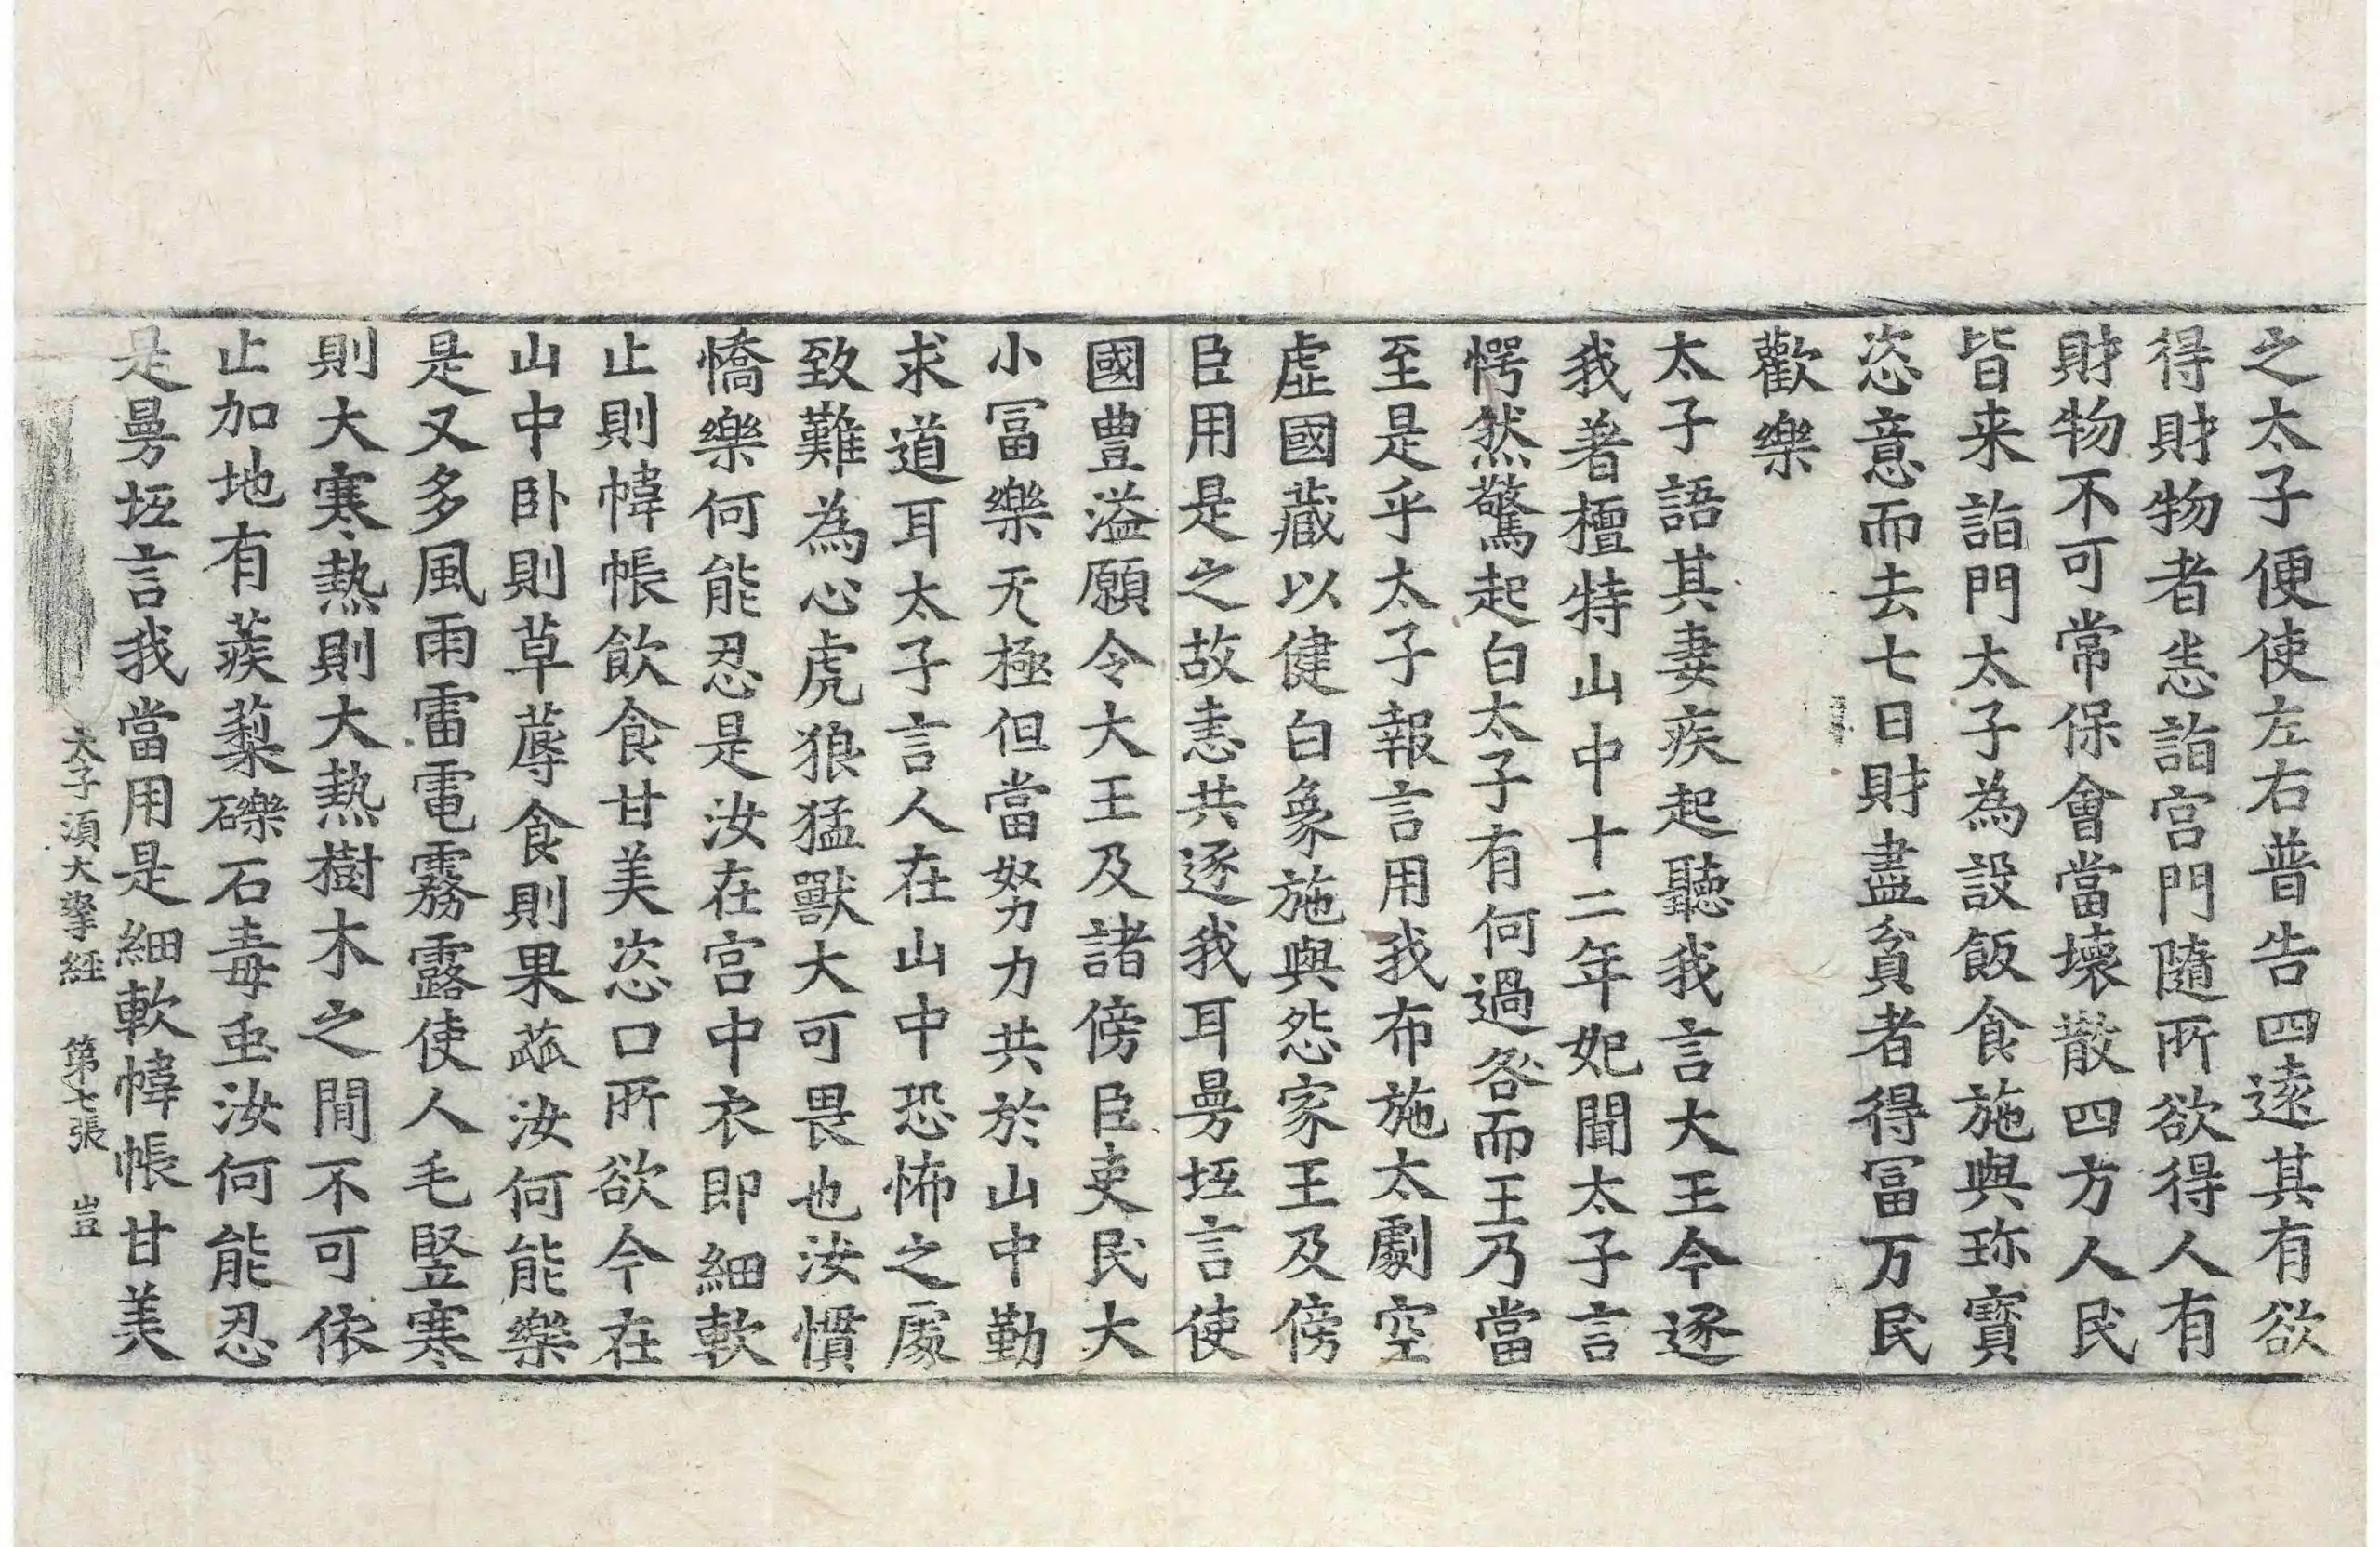 之太子便使左右普告四遠其有欲
得財物者恣詣宮門隨所欲得人有
財物不可常保會當壞散四方人民
皆来詣門太子為設飯食施與珎寶
恣意而去七日財盡貧者得冨万民
歡樂
太子語其妻疾起聽我言大王今逐
我著檀特山中十二年妃聞太子言
愕然驚起白太子有何過咎而王乃當
至是乎太子報言用我布施太劇空
虛國藏以健白象施與怨家王及傍
臣用是之故恚共逐我耳曼坘言使
國豊溢願令大王及諸傍臣吏民大
小冨樂无極但當努力共於山中勤
求道耳太子言人在山中恐怖之處
致難為心虎狼猛獸大可畏也汝慣
憍樂何能忍是汝在宮中衣即細軟
止則幃帳飲食甘美恣口所欲今在
山中卧則草蓐食則果蓏汝何能樂
是又多風雨雷電霧露使人毛竪寒
則大寒熱則大熱樹木之間不可依
止加地有蒺蔾礫石毒虫汝何能忍
是曼坘言我當用是細軟幃帳甘美
太子須大拏経　第七張　豈